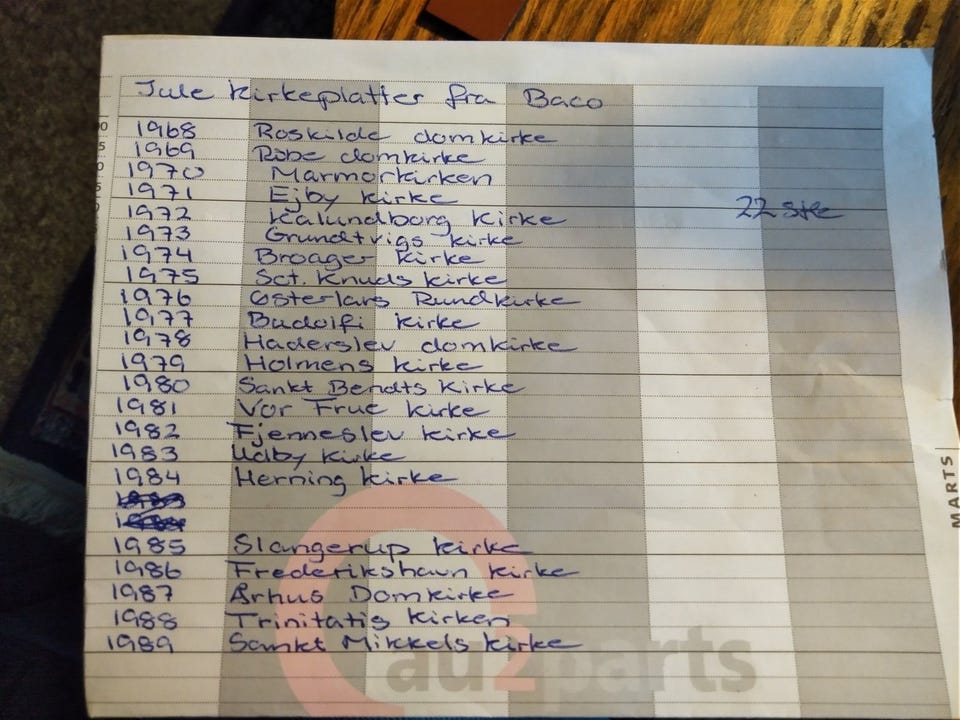 Jule Kirkeplatter fra Baco
1968 Roskilde domkirke
1969 Ribe domkirke
1970 Marmorkirken
1971 Ejby Kirke
1972 Kalundborg Kirke
22 stk
1973 Grundtvigs kirke
1974 Broager Kirke
1975 Sct. Knuds kirke
1976 Østerlars Rundkirke
1977 Budolfi kirke
1978 Haderslev domkirke
1979 Holmens kirke
1980 Sankt Bendts Kirke
1981 Vor Frue kirke
1982 Fjenneslev kirke
1983 Udby kirke
1984 Herning kirke
1985 Slangerup kirke
1986 Frederikshavn kirke
1987 Århus Domkirke
1988 Trinitatis Kirken
1989 Sankt Mikkels kirke
au2parts
MARTS